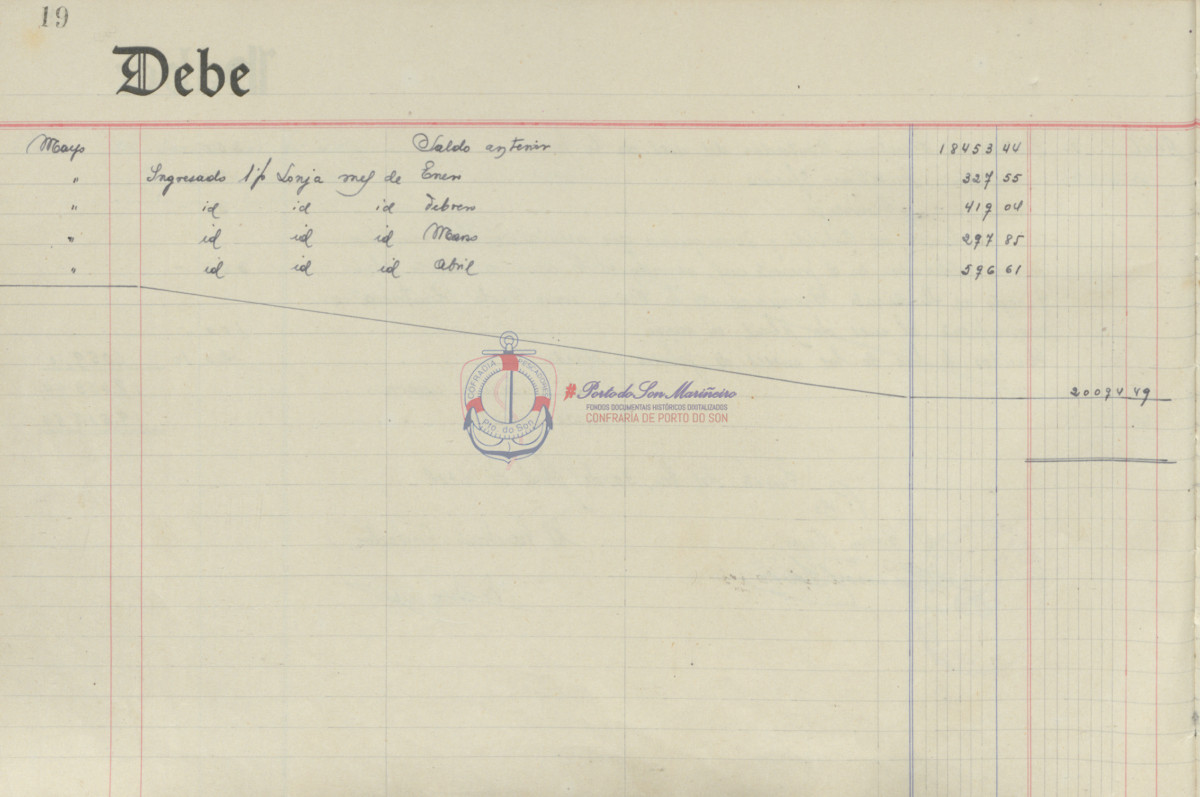 19
Debe
Mayo Saldo anterior 18453 44
" Ingresado 1% Lonja mes de Enero 327 55
" id id id Febrero 419 04
" id id id Marzo 297 85
" id id id Abril 596 61
20094 49
COFRADIA PESCADORES
Pto. do Son
#Porto do Son Mariñeiro
FONDOS DOCUMENTAIS HISTÓRICOS DIXITALIZADOS
CONFRARÍA DE PORTO DO SON